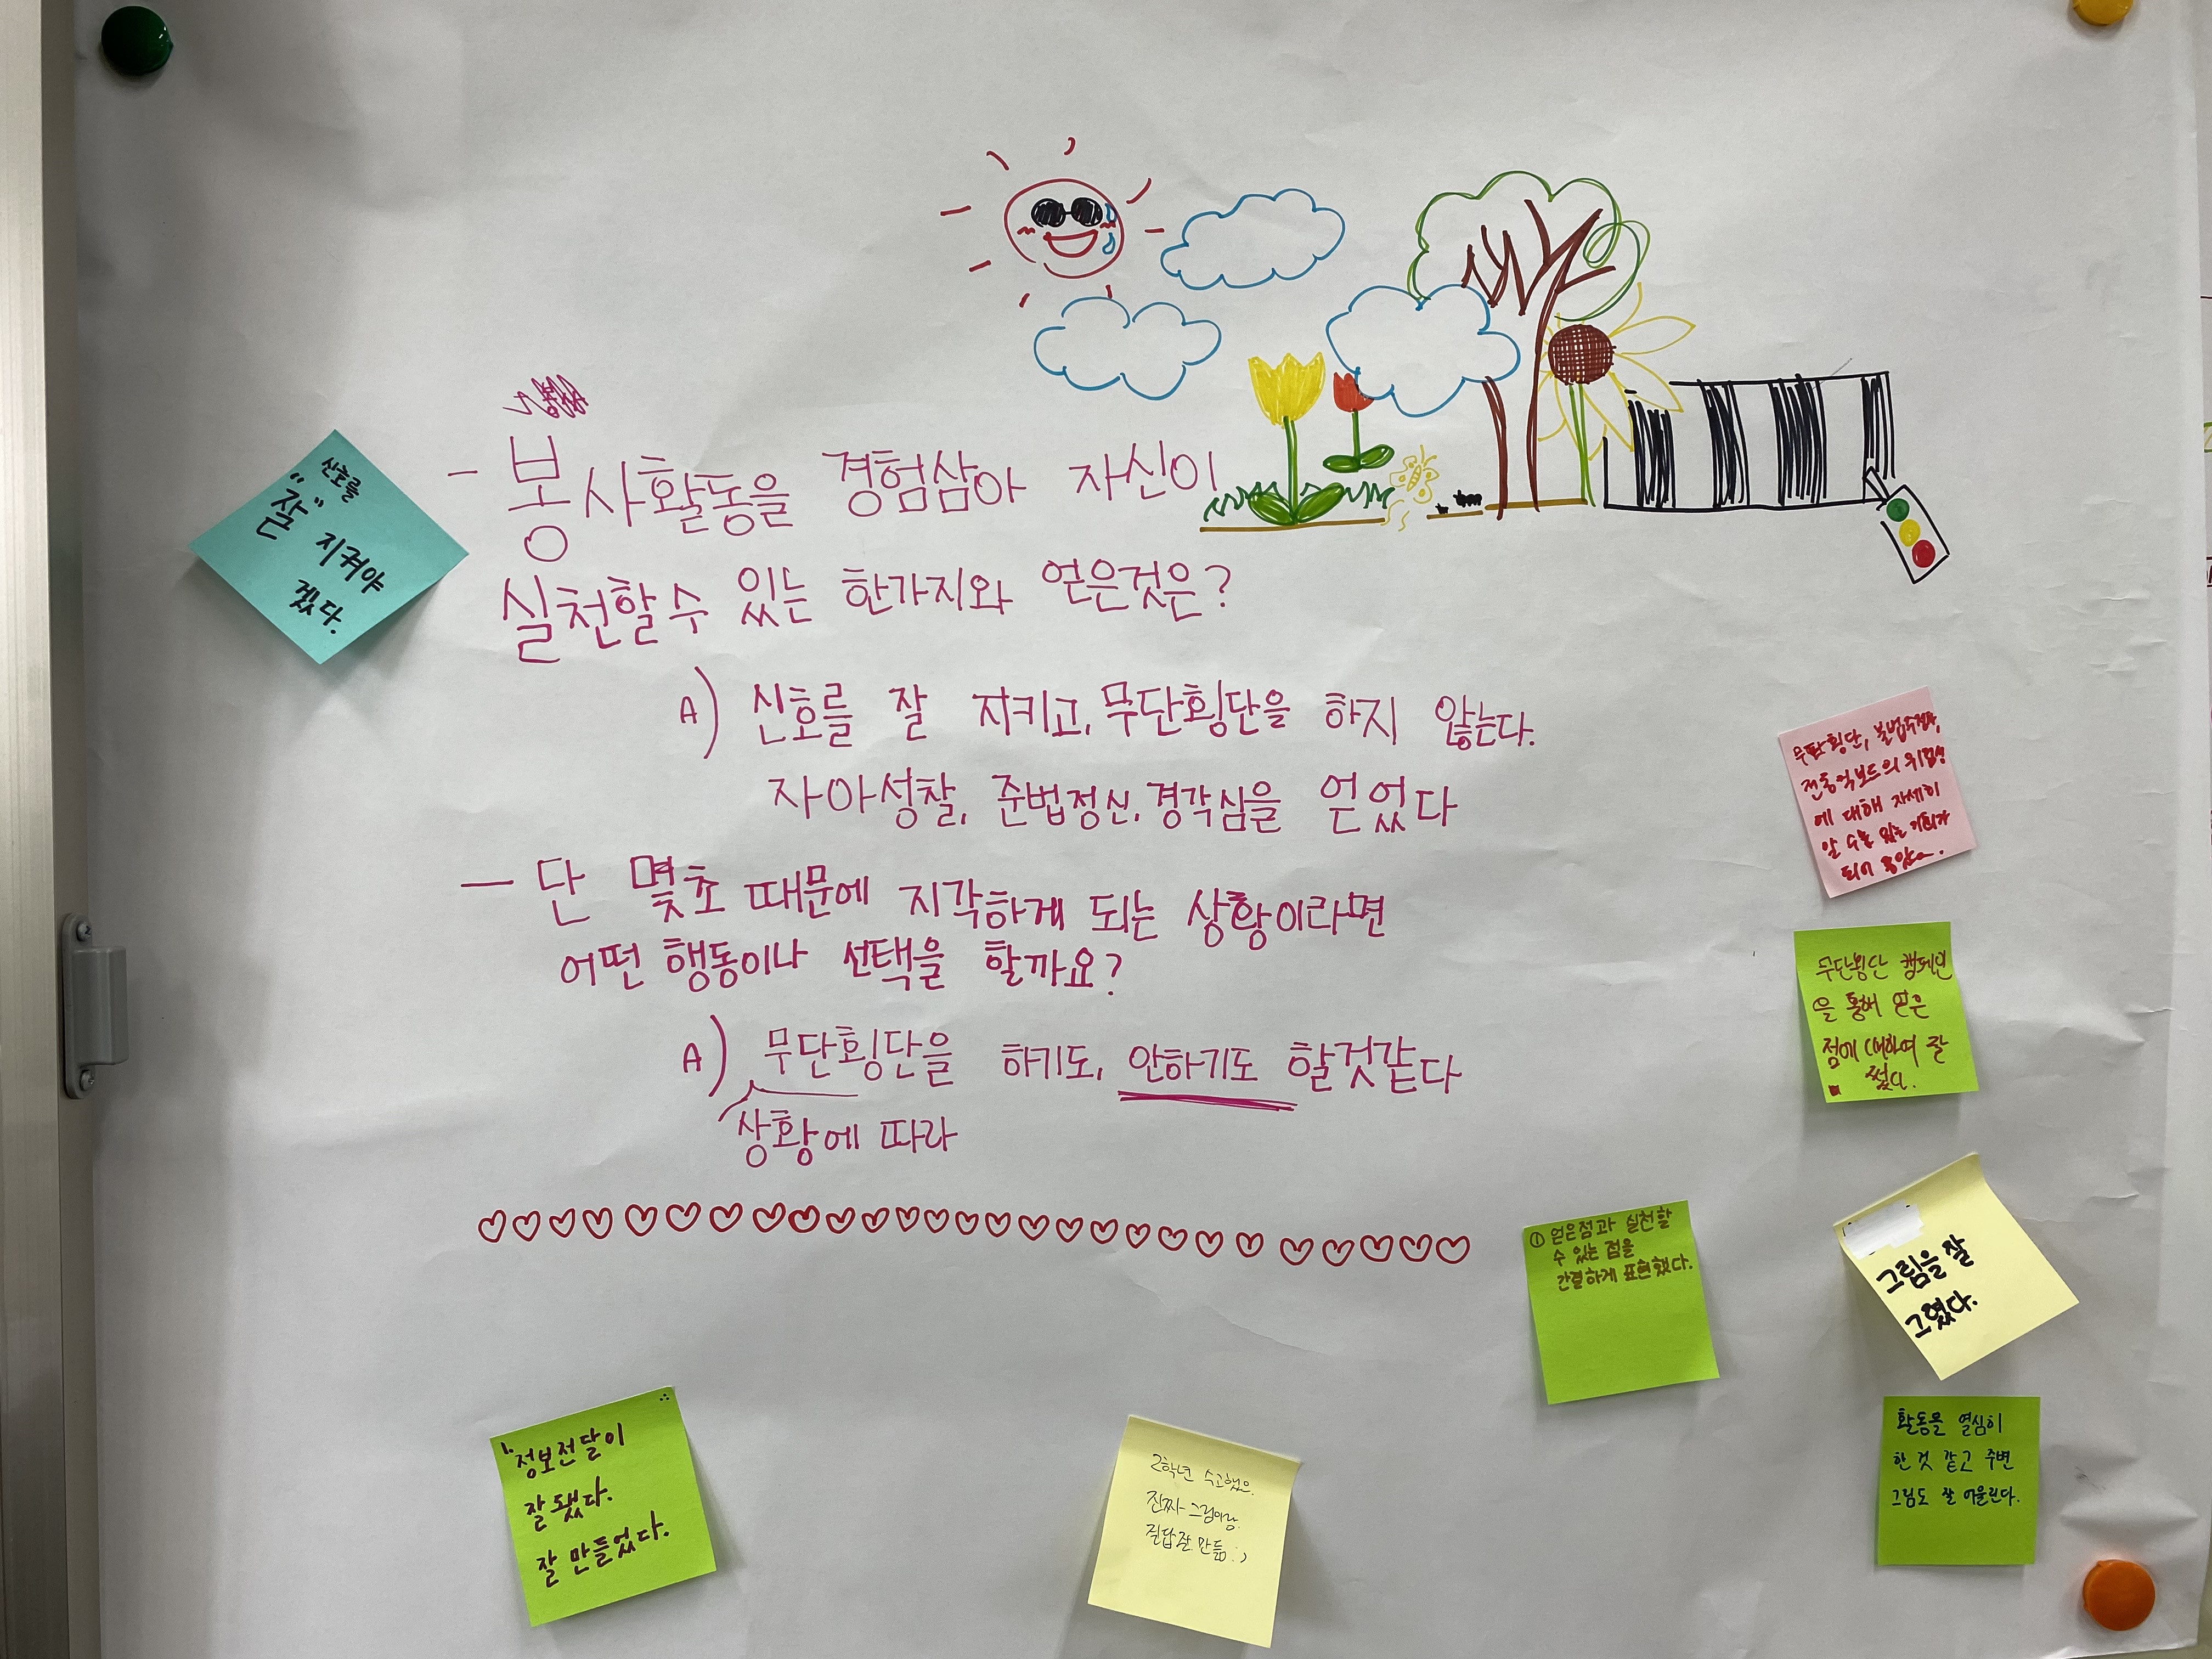 - 봉사활동을 경험삼아 자신이
실천할수 있는 한가지와 얻은것은?
A) 신호를 잘 지키고, 무단횡단을 하지 않는다.
자아성찰, 준법정신, 경각심을 얻었다
- 단 몇초 때문에 지각하게 되는 상황이라면
어떤 행동이나 선택을 할까요?
A) 무단횡단을 하기도, 안하기도 할것같다
상황에 따라
신호를
"잘" 지켜야
겠다.
무단횡단, 불법주정차,
전동킥보드의 위험성
에 대해 자세히
알 수 있는 기회가
되어 좋았다.
무단횡단 캠페인
을 통해 얻은
점에 대하여 잘
썼다.
① 얻은점과 실천할
수 있는 점을
간결하게 표현했다.
그림을 잘
그렸다.
활동을 열심히
한 것 같고 주변
그림도 잘 어울린다.
1. 정보전달이
잘 됐다.
잘 만들었다.
2학년 수고했으.
진짜 그림이랑
질답 잘 만듦 :)